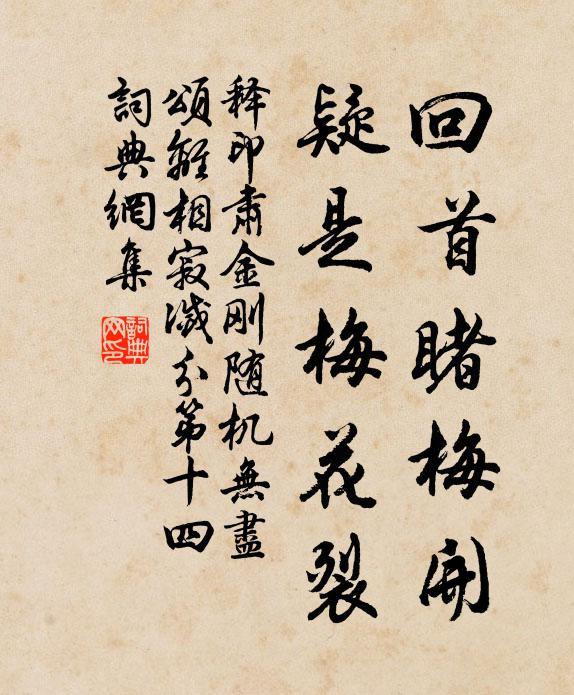 回首睹梅開
疑是梅花裂
释印肃金刚随机無盡
頌離相寂滅分第十四
詞典網集
詞典
网印